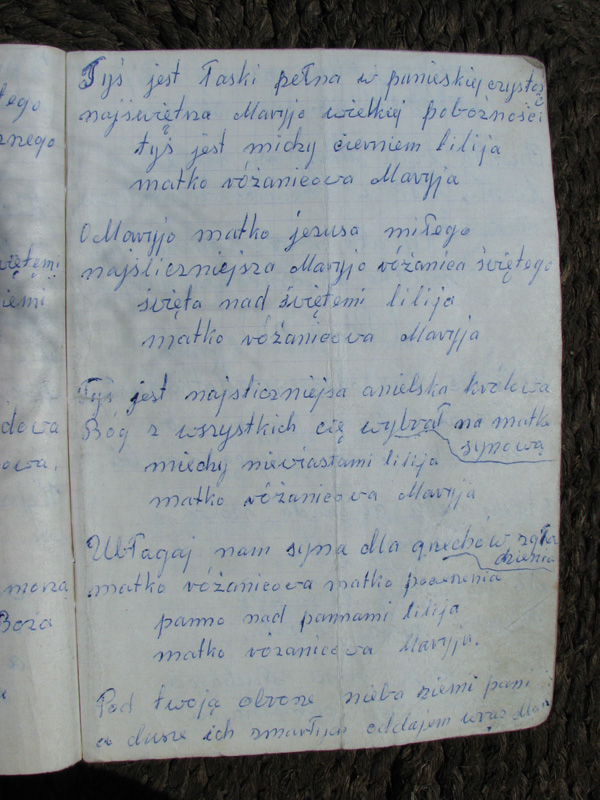 łego
znego
więtemi
iemi
dowa
owa.
morza
Boża
Tyś jest łaski pełna w panieskiej czystoś
ci
najświętsza Maryjo wielkiej pobożności
tyś jest midzy cierniem lilija
matko różanicowa Maryja
O Maryjo matko jezusa miłego
najśliczniejsza Maryjo różańca świętego
święta nad świętemi lilija
matko różanicowa Maryja
Tyś jest najsliczniejsa anielska królowa
Bóg z wszystkich cię wybrał na matke
synową
miedzy niewiastami lilija
matko różanicowa Maryja
Ubłagaj nam syna dla grzechów zgła
dzenia
matko różanicowa matko
panno nad pannami lilija
matko rożanicowa Maryja.
Pod twoją obrone nieba ziemi pani
a dusze ich zmarłych oddajem wraz